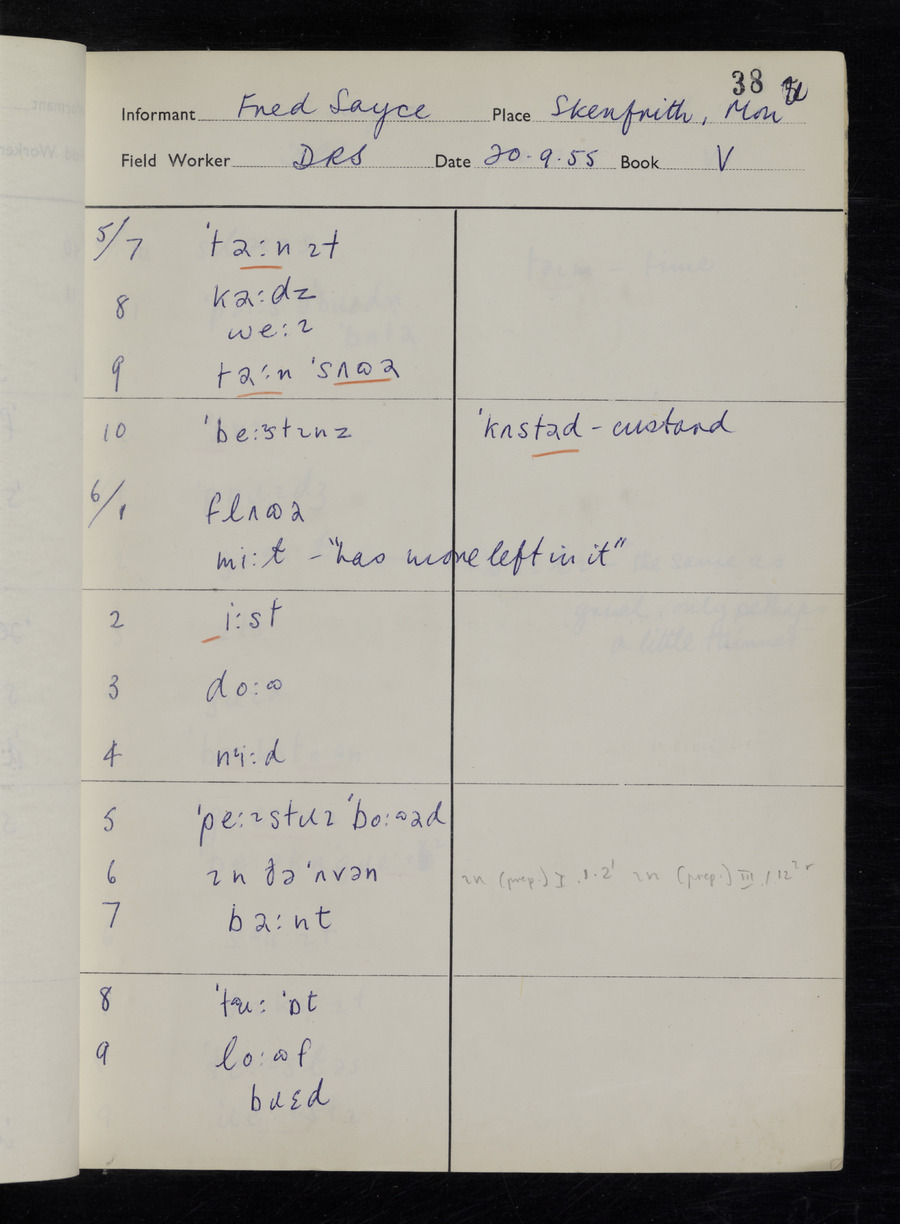 38
Informant Fred Sayce Place Skenfrith, Mon
Field Worker DRS Date 20.9.55 Book V
5/7 ˈtəːnɪt
8 kəːdz
weːɪ
9 təːn ˈsʌʊə
10 ˈbeːɪstɪnz ˈkʌstəd - custard
6/1 flʌʊə
miːt - "has more left in it"
2 iːst
3 doːʊ
4 niːd
5 ˈpeːɪstɹɪ ˈboːʊəd
6 ɪn ðə ˈʌvən ɪn (prep.) I .1.2¹ ɪn (prep.) III .1.12
7 bəːnt
8 ˈɒt
9 loːʊf
bɹɛd